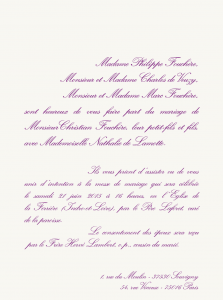 Madame Philippe Fouchère,
Monsieur et Madame Charles de Vouzy,
Monsieur et Madame Marc Fouchère,
sont heureux de vous faire part du mariage de
Monsieur Christian Fouchère, leur petit-fils et fils,
avec Mademoiselle Nathalie de Lamotte.
Ils vous prient d'assister ou de vous
unir d'intention à la messe de mariage qui sera célébrée
le samedi 21 juin 2015 à 16 heures, en l'Eglise de
la Ferrière (Indre-et-Loire), par le Père Lefort, curé
de la paroisse.
Le consentement des époux sera reçu
par le Frère Hervé Lambert, o.p., cousin du marié.
1, rue du Moulin - 37530 Souvigny
54, rue Vineuse - 75016 Paris